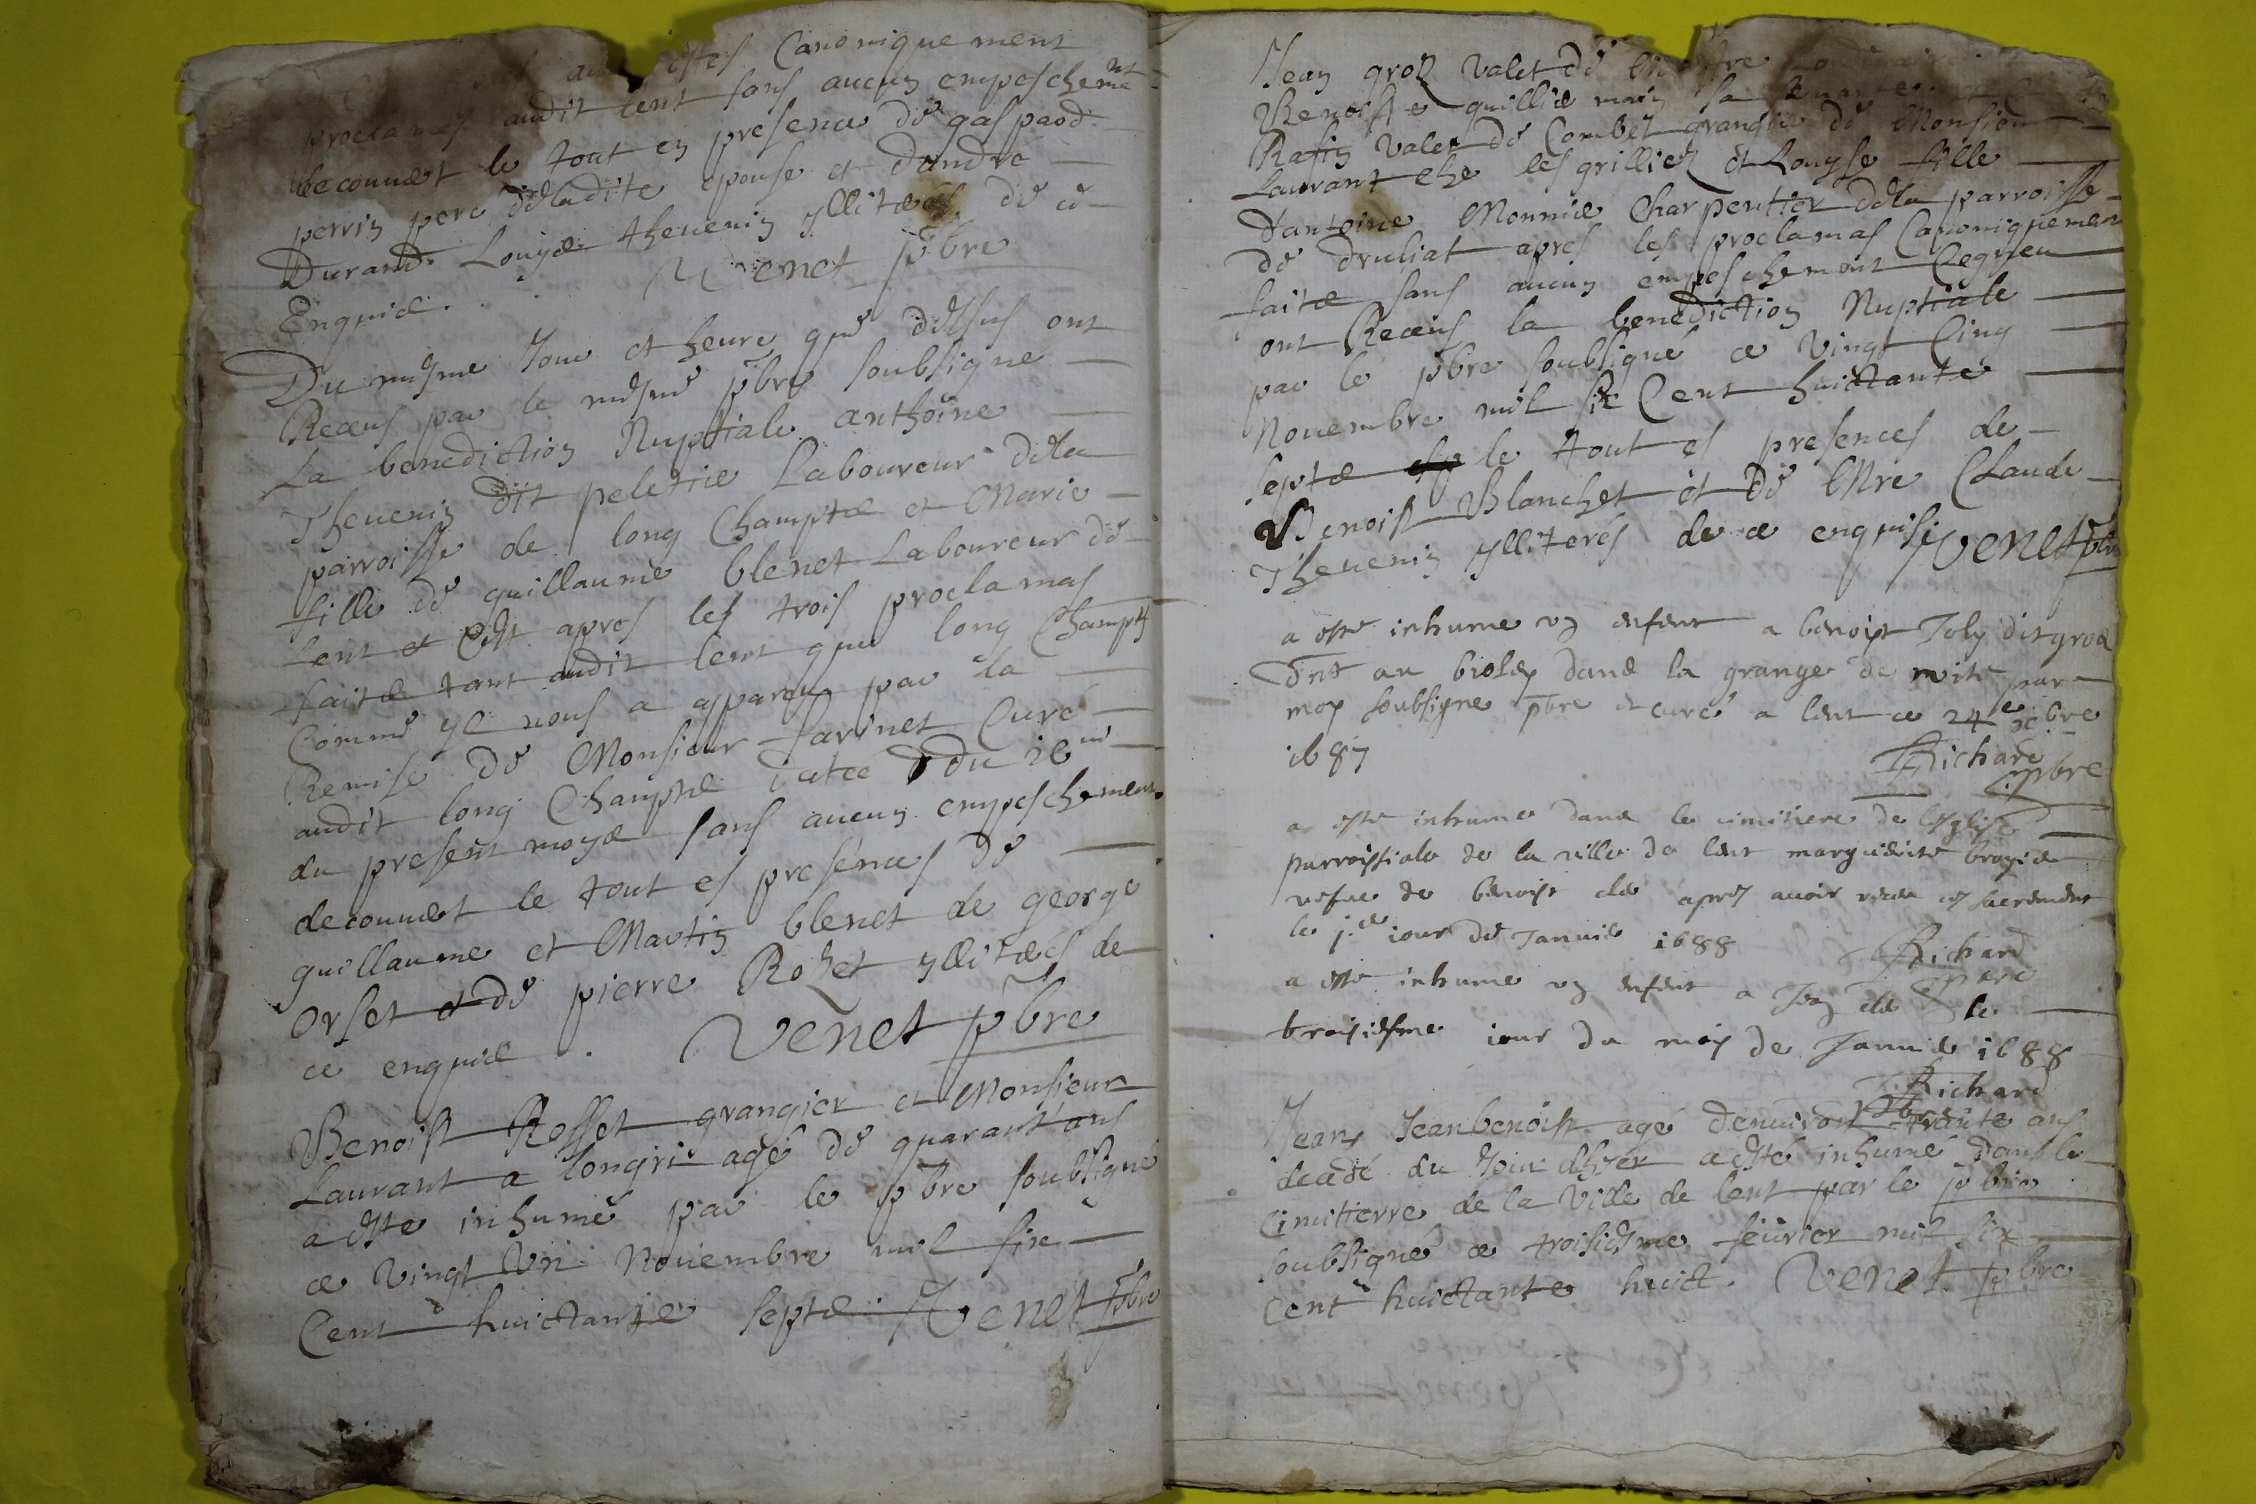 estes Canoniquement
proclamés audit Lent sans aucun empeschemt
de connuet le tout en presence de gaspard
perrin pere dela dite epouse et dandre
Durand Louys theuenin ylliteres de ce
Enquis. Venet pbre
Du mesme Jour et heure que dessus ont
Receus par le mesme pbre soubsigne
La benediction Nuptiale anthoine
Theuenin dit peletie Laboureur dela
parroisse de long Champtz et Marie
fille de guillaume blenet Laboureur de
Lent et Cest apres les trois proclamas
faitz tant audit lent que long Champtz
Comme yl nous a apparu par la
Remise de Monsieur farinet Curé
audit long Champtz datee du 18me
du present moys sans aucun empeschement
de connuet le tout es présences de
guillaume et Martin blenet de george
Orset et de pierre Rozet yllitérés de
ce enquis. Venet pbre
Benoist Rosset grangier et Monsieur
Laurant a longris agé de quarant ans
a este inhumé par le pbre soubsigné
ce Vingt Un Nouembre mil six
Cent huictante septz. Venet pbre
Jean groz Valet de
Benoiste quillie
Rafin Valet de Combet grangie de Monsieur
Laurant che les grilliez et Louyse fille
d'antoine Monnie Charpentier dela parroisse
de druliat apres les proclamas Canoniquement
faitz sans aucun empeschemont
ont Receus la benediction Nuptiale
par le pbre soubsigné ce Vingt Cinq
Nouembre mil six Cent huictante
septz le tout es presences de
Benoist Blanchet et de Mre Claude
Theuenin ylliterés de ce enquis Venet pbre
a este inhume un enfent a benoist Joly dit groz
au biolay dans la grange de par
moy soubsigne pbre et curé a lent ce 24e xbre
1687 Richard
pbre
a este inhumee dans le cimitiere de lesglise
parroissiale de la ville de lent marguerite
vefue de benoist apres auoir receu ces sacrements
le 1.er iour de Januie 1688 Richard
pbre
a este inhume un enfent a Jean le
troisiesme iour du moy de Januie 1688
Richard
pbre
Jean Jeanbenoist agé denuiron trante ans
decedé du Jour dhyer a esté inhumé dans le
Cimittierre de la Ville de lent par le pbre
soubsigné ce troisiesme feürier mil six
Cent huictante huict. Venet pbre